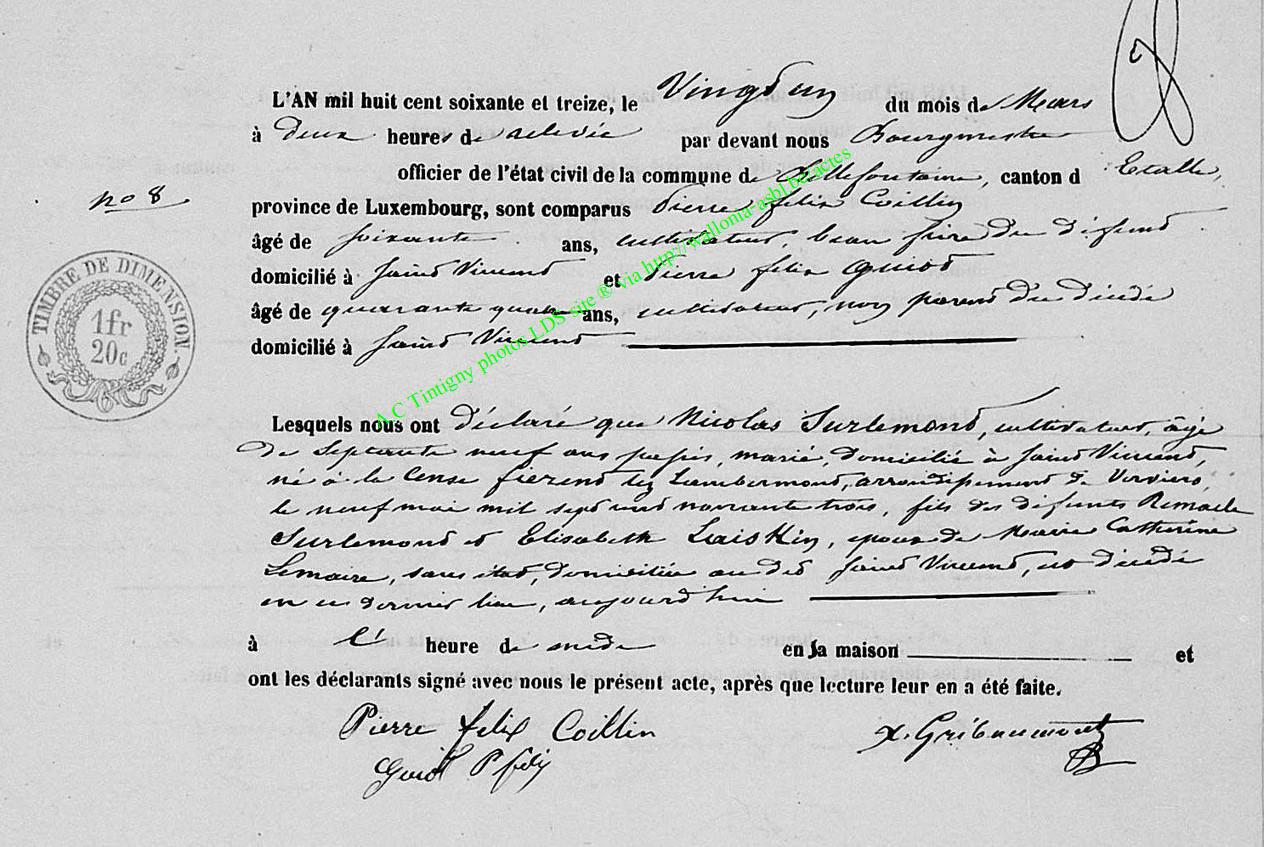 L'AN mil huit cent soixante et treize, le Vingt un du mois de Mars
à deux heures de relevée par devant nous Bourgmestre
officier de l'état civil de la commune de Bellefontaine, canton d'Etalle,
no 8
province de Luxembourg, sont comparus Pierre felix Coillin
âgé de soixante ans, cultivateur, beau frère du défunt
domicilié à Saint Vincent et Pierre felix Guiot
âgé de quarante ans, cultivateur, non parent du décédé
domicilié à Saint Vincent
TIMBRE DE DIMENSION
1fr
20c
A C Tintigny photos LDS site ® via http://wallonia-asbl.be/actes
Lesquels nous ont déclaré que Nicolas Surlemont, cultivateur, âgé
de septante neuf ans passés, marié, domicilié à Saint Vincent,
né à la Cense fierent lez Lambermont, arrondissement de Verviers,
le neuf mai mil sept cent nonante trois, fils des défunts Remacle
Surlemont et Elisabeth Laiskin, époux de Marie Catherine
Lemaire, sans état, domiciliée au dit Saint Vincent, est décédé
en ce dernier lieu, aujourd'hui
à l' heure de midi en sa maison et
ont les déclarants signé avec nous le présent acte, après que lecture leur en a été faite.
Pierre felix Coillin X. Gribaumont
Guiot P felix